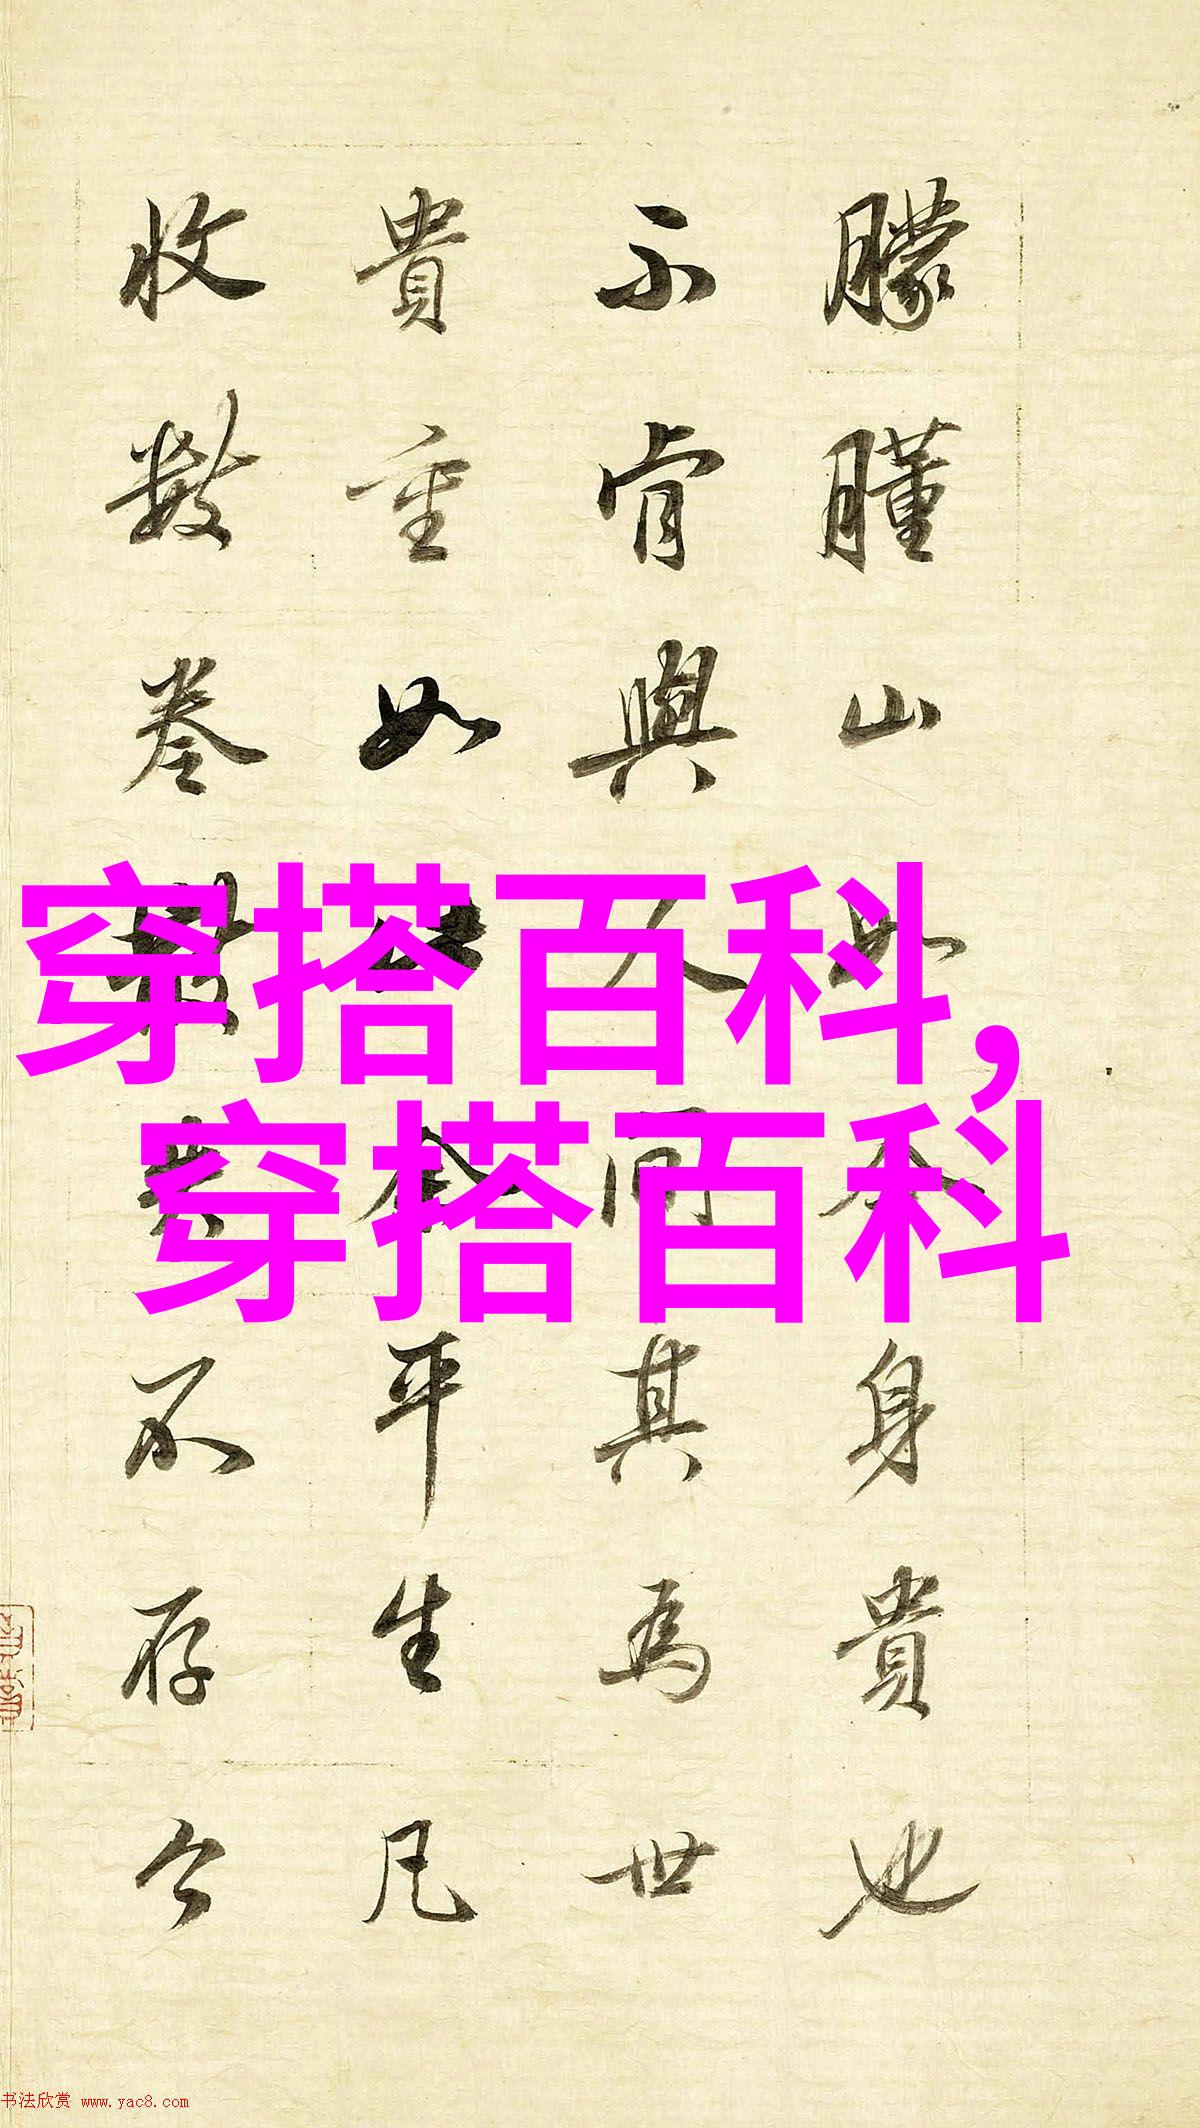 穿搭百科,
穿搭百科
朦山身貴也
不肯與人同其為世
貴重如平生凡
收數卷不存今
书法欣赏 www.yac8.com